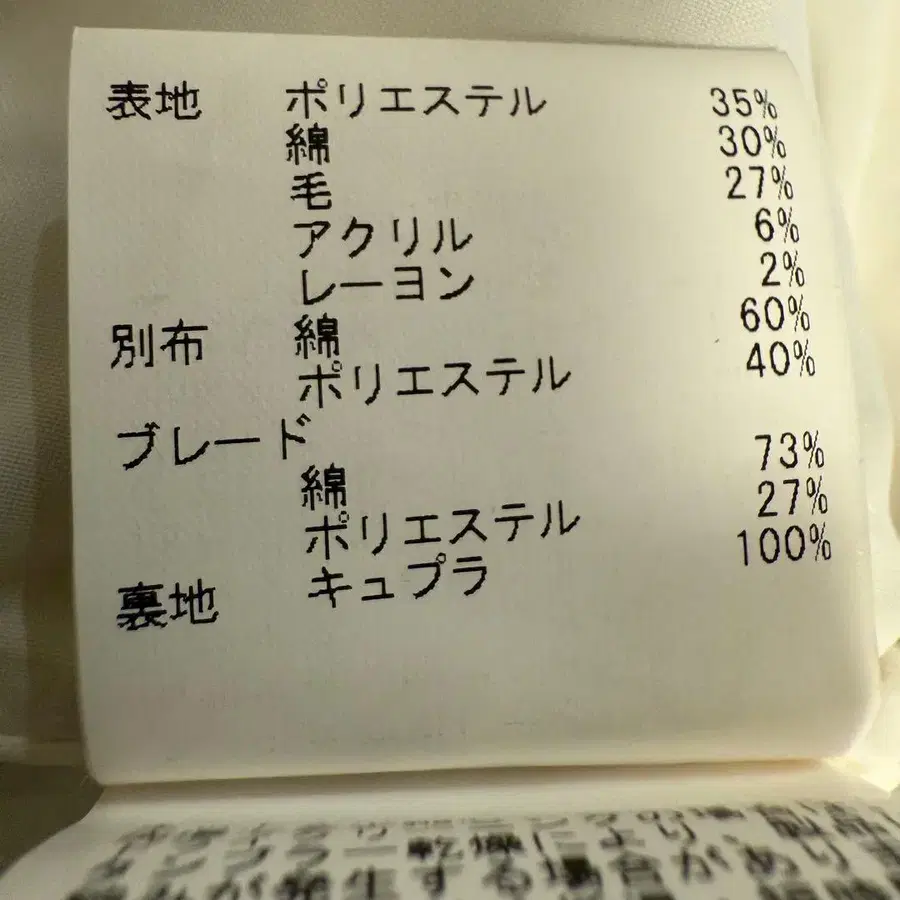 表地 ポリエステル 35%
綿 30%
毛 27%
アクリル 6%
レーヨン 2%
別布 綿 60%
ポリエステル 40%
ブレード
綿 73%
ポリエステル 27%
裏地 キュプラ 100%
タンブラー乾燥により、
が発生する場合があります